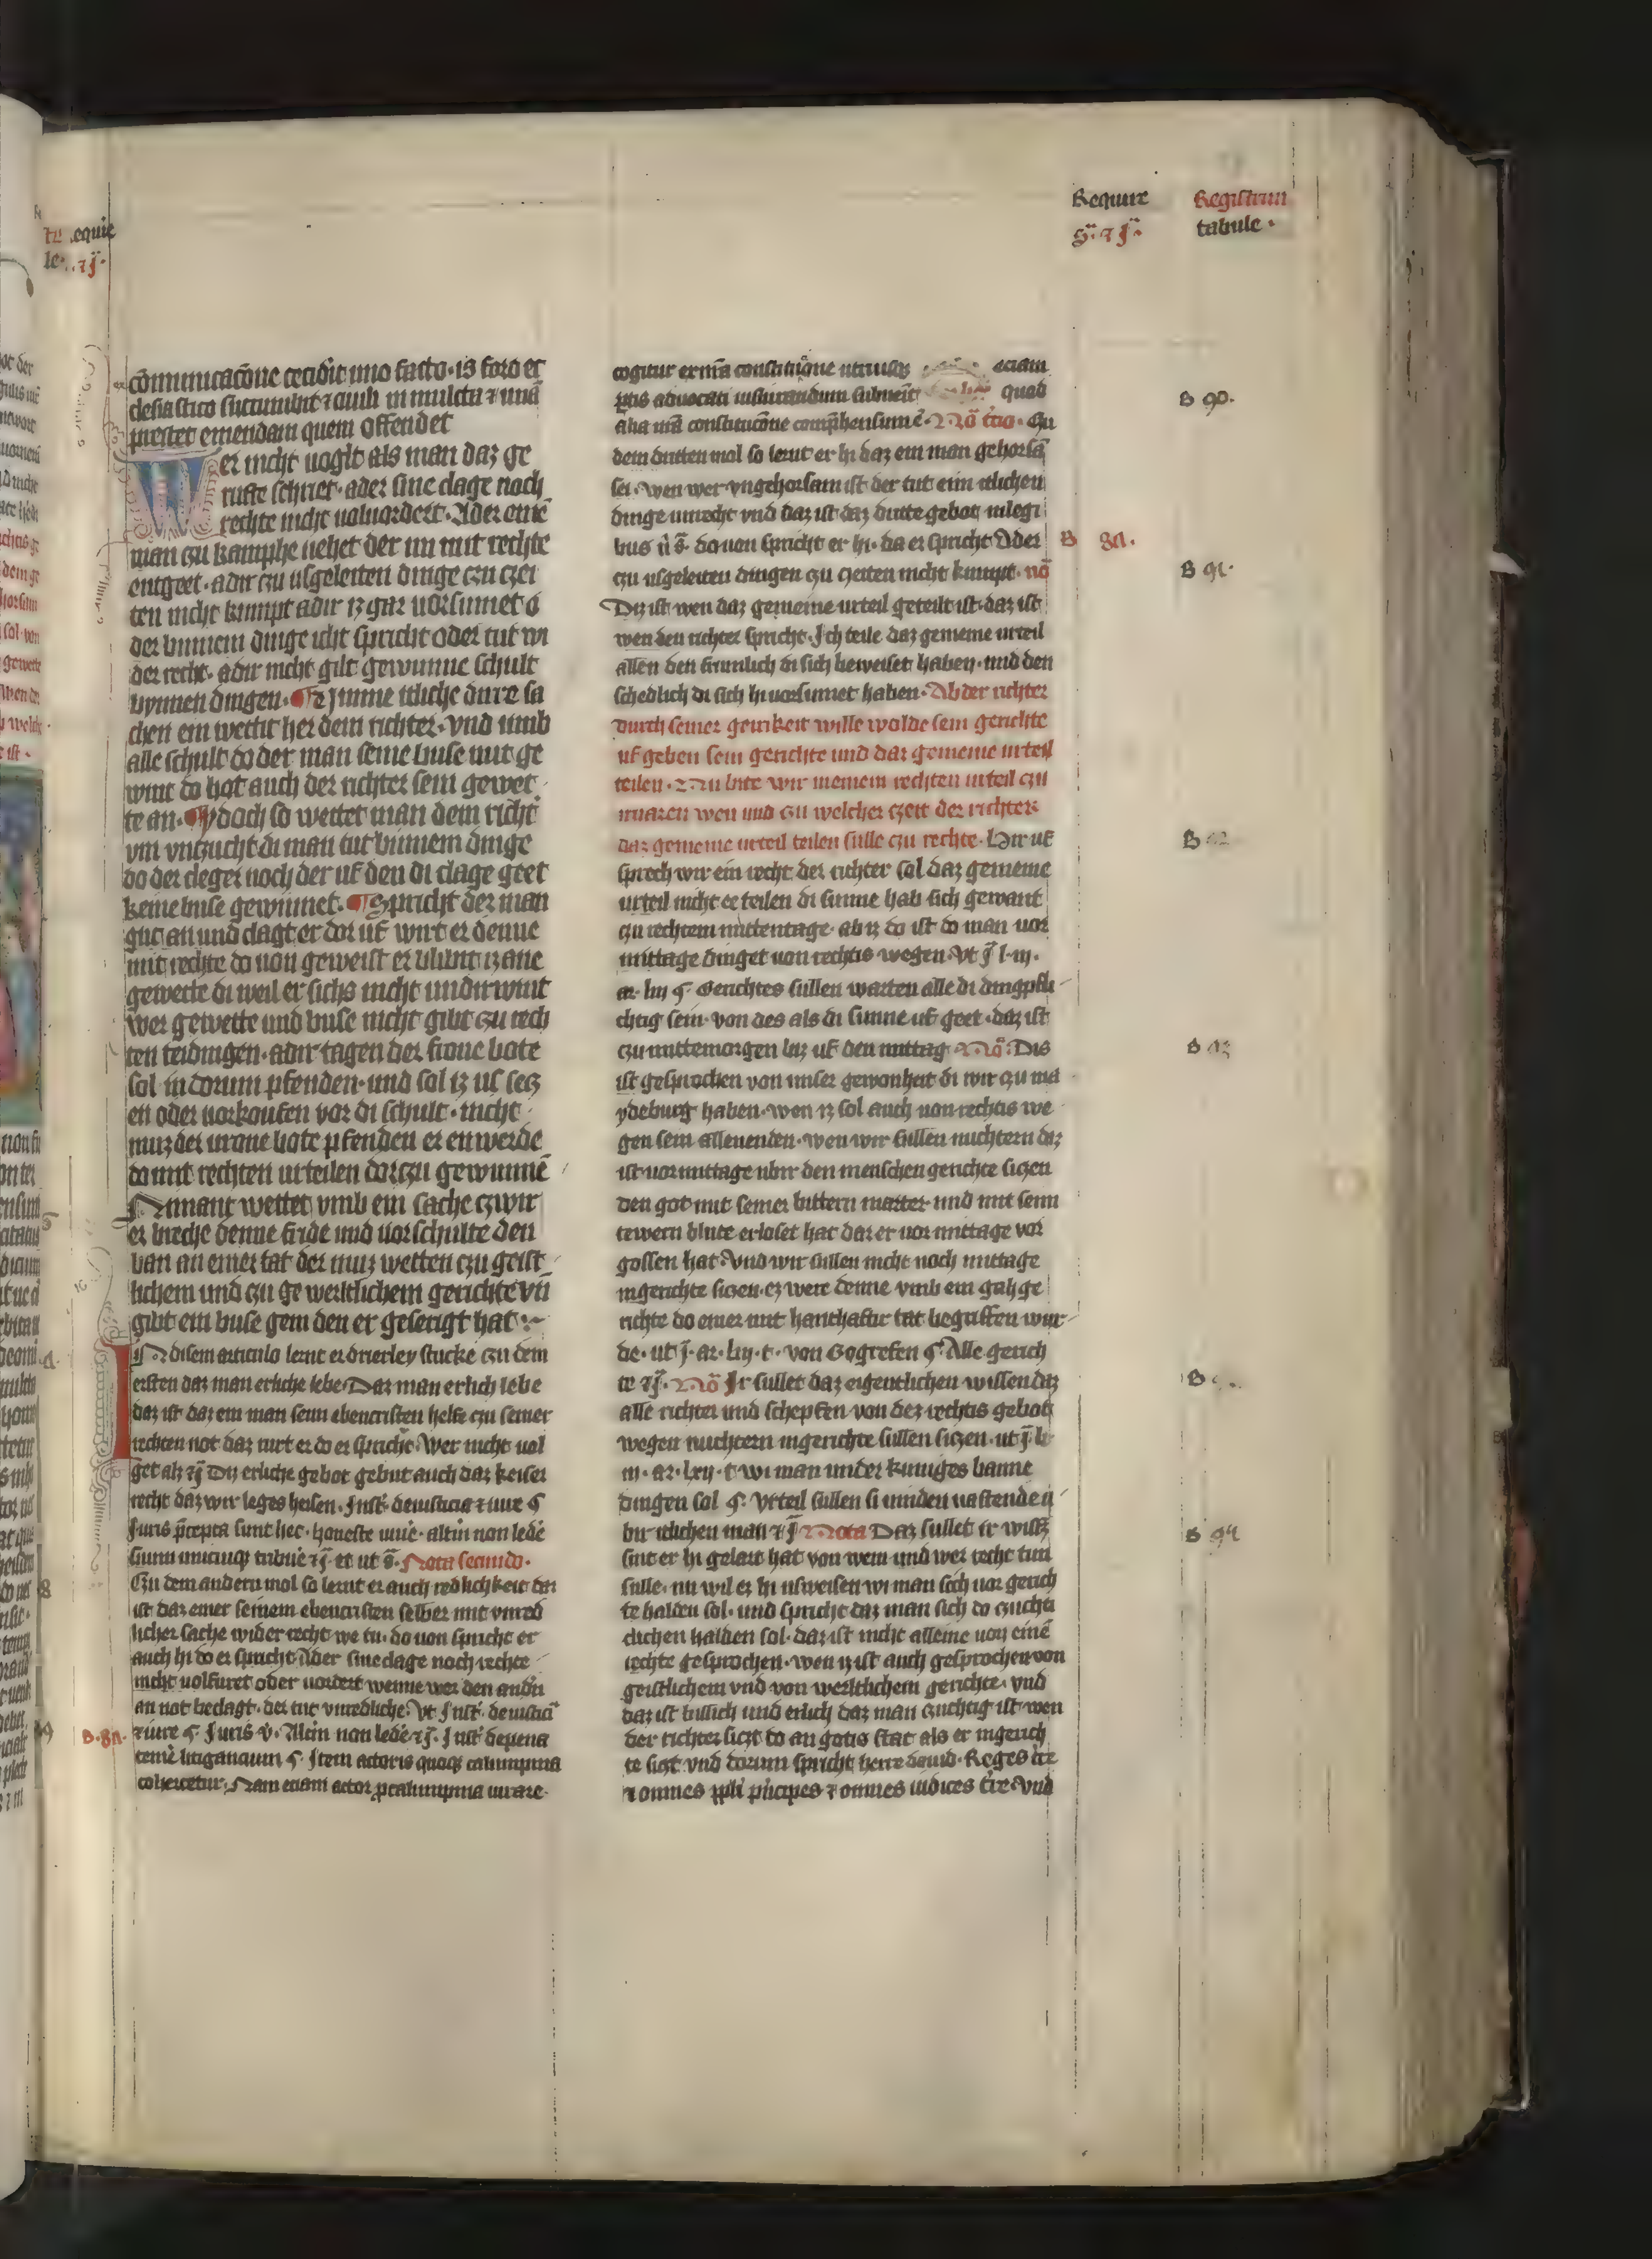 Require
s̈. ⁊ j̈.
Registrum
tabule.
cōmunicacōne cecidit uno facto. is foro ec
clesiastico succumbit ⁊ ciuili in multa ⁊ unā
prestet emendam quem offendet
Wer nicht uoglt als man daz ge
rufte schriet. ader sine clage noch
rechte nicht uoluordert. Ader eine
man czu kamphe uehet der im mit rechte
entgeet. adir czu usgeleiten dinge czu czei
ten nicht kumpt adir iz gar uorsumet o
der binnem dinge icht spricht oder tut wi
der recht. adir nicht gilt gewunne schult
bynnen dingen. ¶ Czumme itliche dirre sa
chen ein wettit her dem richter. vnd umb
alle schult do der man seine buse mit ge
wint do hot auch der richter sein gewet
te an. ¶ ydoch so wettet man dem richt
vm vnczucht di man tut binnem dinge
do der cleger noch der uf den di clage geet
keine buse gewinnet. ¶ Spricht der man
gut an und clagt er dor uf wirt er denne
mit rechte do uon geweist er blibt iz ane
gewette di weil er sichs nicht undirwint
wer gewette und buse nicht gibt czu rech
ten teidingen. adir tagen der frone bote
sol in dorum pfenden. und sol iz us secz
en oder uorkoufen vor di schult. nicht
muz der urone bote pfenden er enwerde
do mit rechten urteilen dorczu gewunnē
Nimant wettet vmb ein sache czwir
er breche denne fride und uorschulte den
ban an einer tat der muz wetten czu geist
lichem und czu ge werltlichem gerichte vn
gibt ein buse gem den er gesergt hat :~
In disem articulo lernt er drierley stucke czu dem
ersten daz man erliche lebe. Daz man erlich lebe
daz ist daz ein man seim ebencristen helfe czu seiner
rechten not daz rurt er do er spricht. Wer nicht uol
get als ⁊j̄ Diz erliche gebot gebut auch daz keiser
recht daz wir leges heisen. Inst. de iusticia ⁊ iure ¶
Juris p̄cepta sunt hec. honeste uiuē. altm̄ non ledē
suum unicuiqꝫ tribuē ⁊j̄. et ut s̄. Nota secundo.
Czu dem andern mol so lernt er auch redlichkeit daz
ist daz einer seinem ebencristen selber mit vnred
licher sache wider recht we tu. do uon spricht er
auch hi do er spricht Ader sine clage noch rechte
nicht uolfuret oder uordert wenne wer den andn̄
an not beclagt. der tut vnredliche. Vt Inst. de iusticia
⁊ iure ¶ Juris v̄. Altm̄ non ledē ⁊j̄. Inst. de pena
temē litigancium ¶ Item actoris quoqꝫ calumpma
cohercetur. Nam eciam actor p calumpma iurare
B. 89.
cogitur ex nr̄a constitucōne utriusqꝫ eciam
ptis aduocati iusiurandum subeunt quod
alia nr̄a constitucōne comp̄hensum ē. Nō tcio. Czu
dem dritten mol so lernt er hi daz ein man gehorsā
sei. Wen wer vngehorsam ist der tut eim itlichen
dinge unrecht vnd daz ist daz dritte gebot in legi
bus ü s̄. do uon spricht er hi. da er spricht Ader
czu usgeleiten dingen czu czeiten nicht kumpt. nō
Diz ist wen daz gemeine urteil geteilt ist. daz ist
wen den richter spricht. Ich teile daz gemeine urteil
allen den frumlich di sich beweiset haben. und den
schedlich di sich hi uorsumet haben. Ab der richter
durch seiner geitikeit wille wolde sein gerichte
uf geben sein gerichte und daz gemeine urteil
teilen. Nu bite wir meinem rechten urteil czu
iruaren wen und czu welcher czeit der richter
daz gemeine urteil teilen sulle czu rechte. Hir uf
sprech wir ein recht der richter sol daz gemeine
urteil nicht ee teilen di sunne hab sich gewant
czu rechtem mittentage. ab iz do ist do man uor
mittage dinget uon rechtis wegen. Vt j̄ l. iij.
ar. liij ¶ Gerichtes sullen warten alle di dingpfli
chtig sein. von des als di sunne uf geet. daz ist
czu mittemorgen biz uf den mittag. Nō. Dis
ist gesprochen von unser gewonheit di wir czu ma
ydeburg haben. wen iz sol auch uon rechtis we
gen sein allenenden. wen wir sullen nuchtern daz
ist uor mittage ubir den menschen gerichte siczen
den got mit seiner bittern marter und mit seim
tewern blute erloset hat daz er uor mittage vor
gossen hat. Vnd wir sullen nicht noch mittage
in gerichte siczen. ez were denne vmb ein gah ge
richte do einer mit hanthaftir tat begriffen wur
de. ut j̄. ar. liij. t. von Gogrefen ¶. Alle gerich
te ⁊j̄. Nō Ir sullet daz eigentlichen wissen daz
alle richter und schepfen von dez rechtis gebot
wegen nuchtern in gerichte sullen siczen. ut j̄ li
iij. ar. lxij. t wi man under kuniges banne
dingen sol ¶. Vrteil sullen si uinden uastende u
bir itlichen man ⁊ j̄ Nota Daz sullet ir wissē
sint er hi gelart hat von wem und wer recht tun
sulle. nu wil ez hi usweisen wi man sich uor gerich
te halden sol. und spricht daz man sich do czuchti
clichen halden sol. daz ist nicht alleine uon einē
rechte gesprochen. wen iz ist auch gesprochen von
geistlichem vnd von werltlichem gerichte. vnd
daz ist billich und erlich daz man czuchtig ist. wen
der richter siczt do an gotis stat als er in gerich
te siczt vnd dorum spricht herre dauid. Reges tr̄e
⁊ omnes ppl̄i p̄ncipes ⁊ omnes iudices tr̄e. Vnd
B 90.
B 89.
B 91.
B 92
B 93
B 94